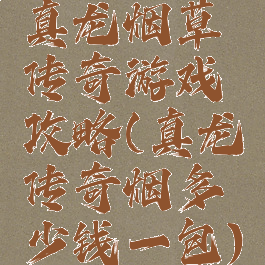 真龙烟草
传奇游戏
攻略(真龙
传奇烟多
少钱一包)